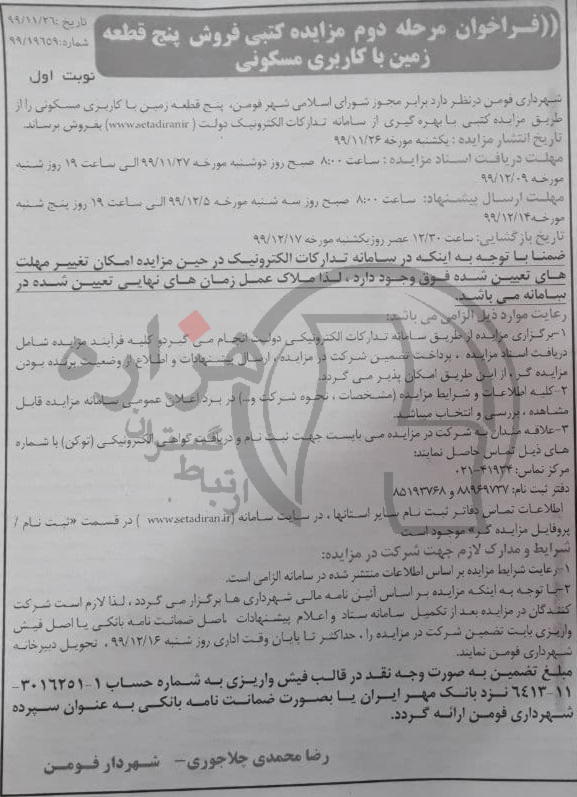 تاریخ :۹۹/۱۱/۲۶
شماره:۹۹/۱۹۶۵۹
((فراخوان مرحله دوم مزایده کتبی فروش پنج قطعه
زمین با کاربری مسکونی
نوبت اول
شهرداری فومن درنظر دارد برابر مجوز شورای اسلامی شهر فومن، پنج قطعه زمین با کاربری مسکونی را از
طریق مزایده کتبی با بهره گیری از سامانه تدارکات الکترونیک دولت (www.setadiran.ir) بفروش برساند.
تاریخ انتشار مزایده : یکشنبه مورخه ۹۹/۱۱/۲۶
مهلت دریافت اسناد مزایده : ساعت ۸:۰۰ صبح روز دوشنبه مورخه ۹۹/۱۱/۲۷ الی ساعت ۱۹ روز شنبه
مورخه ۹۹/۱۲/۰۹
مهلت ارسال پیشنهاد: ساعت ۸:۰۰ صبح روز سه شنبه مورخه ۹۹/۱۲/۵ الی ساعت ۱۹ روز پنج شنبه
مورخه ۹۹/۱۲/۱۴
تاریخ بازگشایی: ساعت ۱۲/۳۰ عصر روزیکشنبه مورخه ۹۹/۱۲/۱۷
ضمنا با توجه به اینکه در سامانه تدارکات الکترونیک در حین مزایده امکان تغییر مهلت
های تعیین شده فوق وجود دارد ، لذا ملاک عمل زمان های نهایی تعیین شده در
سامانه می باشد.
رعایت موارد ذیل الزامی می باشد:
۱-برگزاری مزایده از طریق سامانه تدارکات الکترونیکی دولت انجام می گیردو کلیه فرآیند مزایده شامل
دریافت اسناد مزایده ، پرداخت تضمین شرکت در مزایده ، ارسال پیشنهادات و اطلاع از وضعیت برنده بودن
مزایده گر ، از این طریق امکان پذیر می گردد.
۲-کلیه اطلاعات و شرایط مزایده (مشخصات ، نحوه شرکت و..) در برد اعلان عمومی سامانه مزایده قابل
مشاهده ، بررسی و انتخاب میباشد.
۳-علاقه مندان به شرکت در مزایده می بایست جهت ثبت نام و دریافت گواهی الکترونیکی (توکن) با شماره
های ذیل تماس حاصل نمایند:
مرکز تماس: ۴۱۹۳۴-۰۲۱
دفتر ثبت نام: ۸۸۹۶۹۷۳۷ و ۸۵۱۹۳۷۶۸
اطلاعات تماس دفاتر ثبت نام سایر استانها ، در سایت سامانه (www.setadiran.ir ) در قسمت «ثبت نام /
پروفایل مزایده گر» موجود است
شرایط و مدارک لازم جهت شرکت در مزایده:
۱-رعایت شرایط مزایده بر اساس اطلاعات منتشر شده در سامانه الزامی است.
۲-با توجه به اینکه مزایده بر اساس آئین نامه مالی شهرداری ها برگزار می گردد ، لذا لازم است شرکت
کنندگان در مزایده بعد از تکمیل سامانه ستاد و اعلام پیشنهادات اصل ضمانت نامه بانکی یا اصل فیش
واریزی بابت تضمین شرکت در مزایده را ، حداکثر تا پایان وقت اداری روز شنبه ۹۹/۱۲/۱۶ ، تحویل دبیرخانه
شهرداری فومن نمایند.
مبلغ تضمین به صورت وجه نقد در قالب فیش واریزی به شماره حساب ۱-۳۰۱۶۲۵۱-
۱۱-۶۴۱۳ نزد بانک مهر ایران یا بصورت ضمانت نامه بانکی به عنوان سپرده
شهرداری فومن ارائه گردد.
رضا محمدی چلاجوری- شهردار فومن
هزاره
گستران
ارتباط